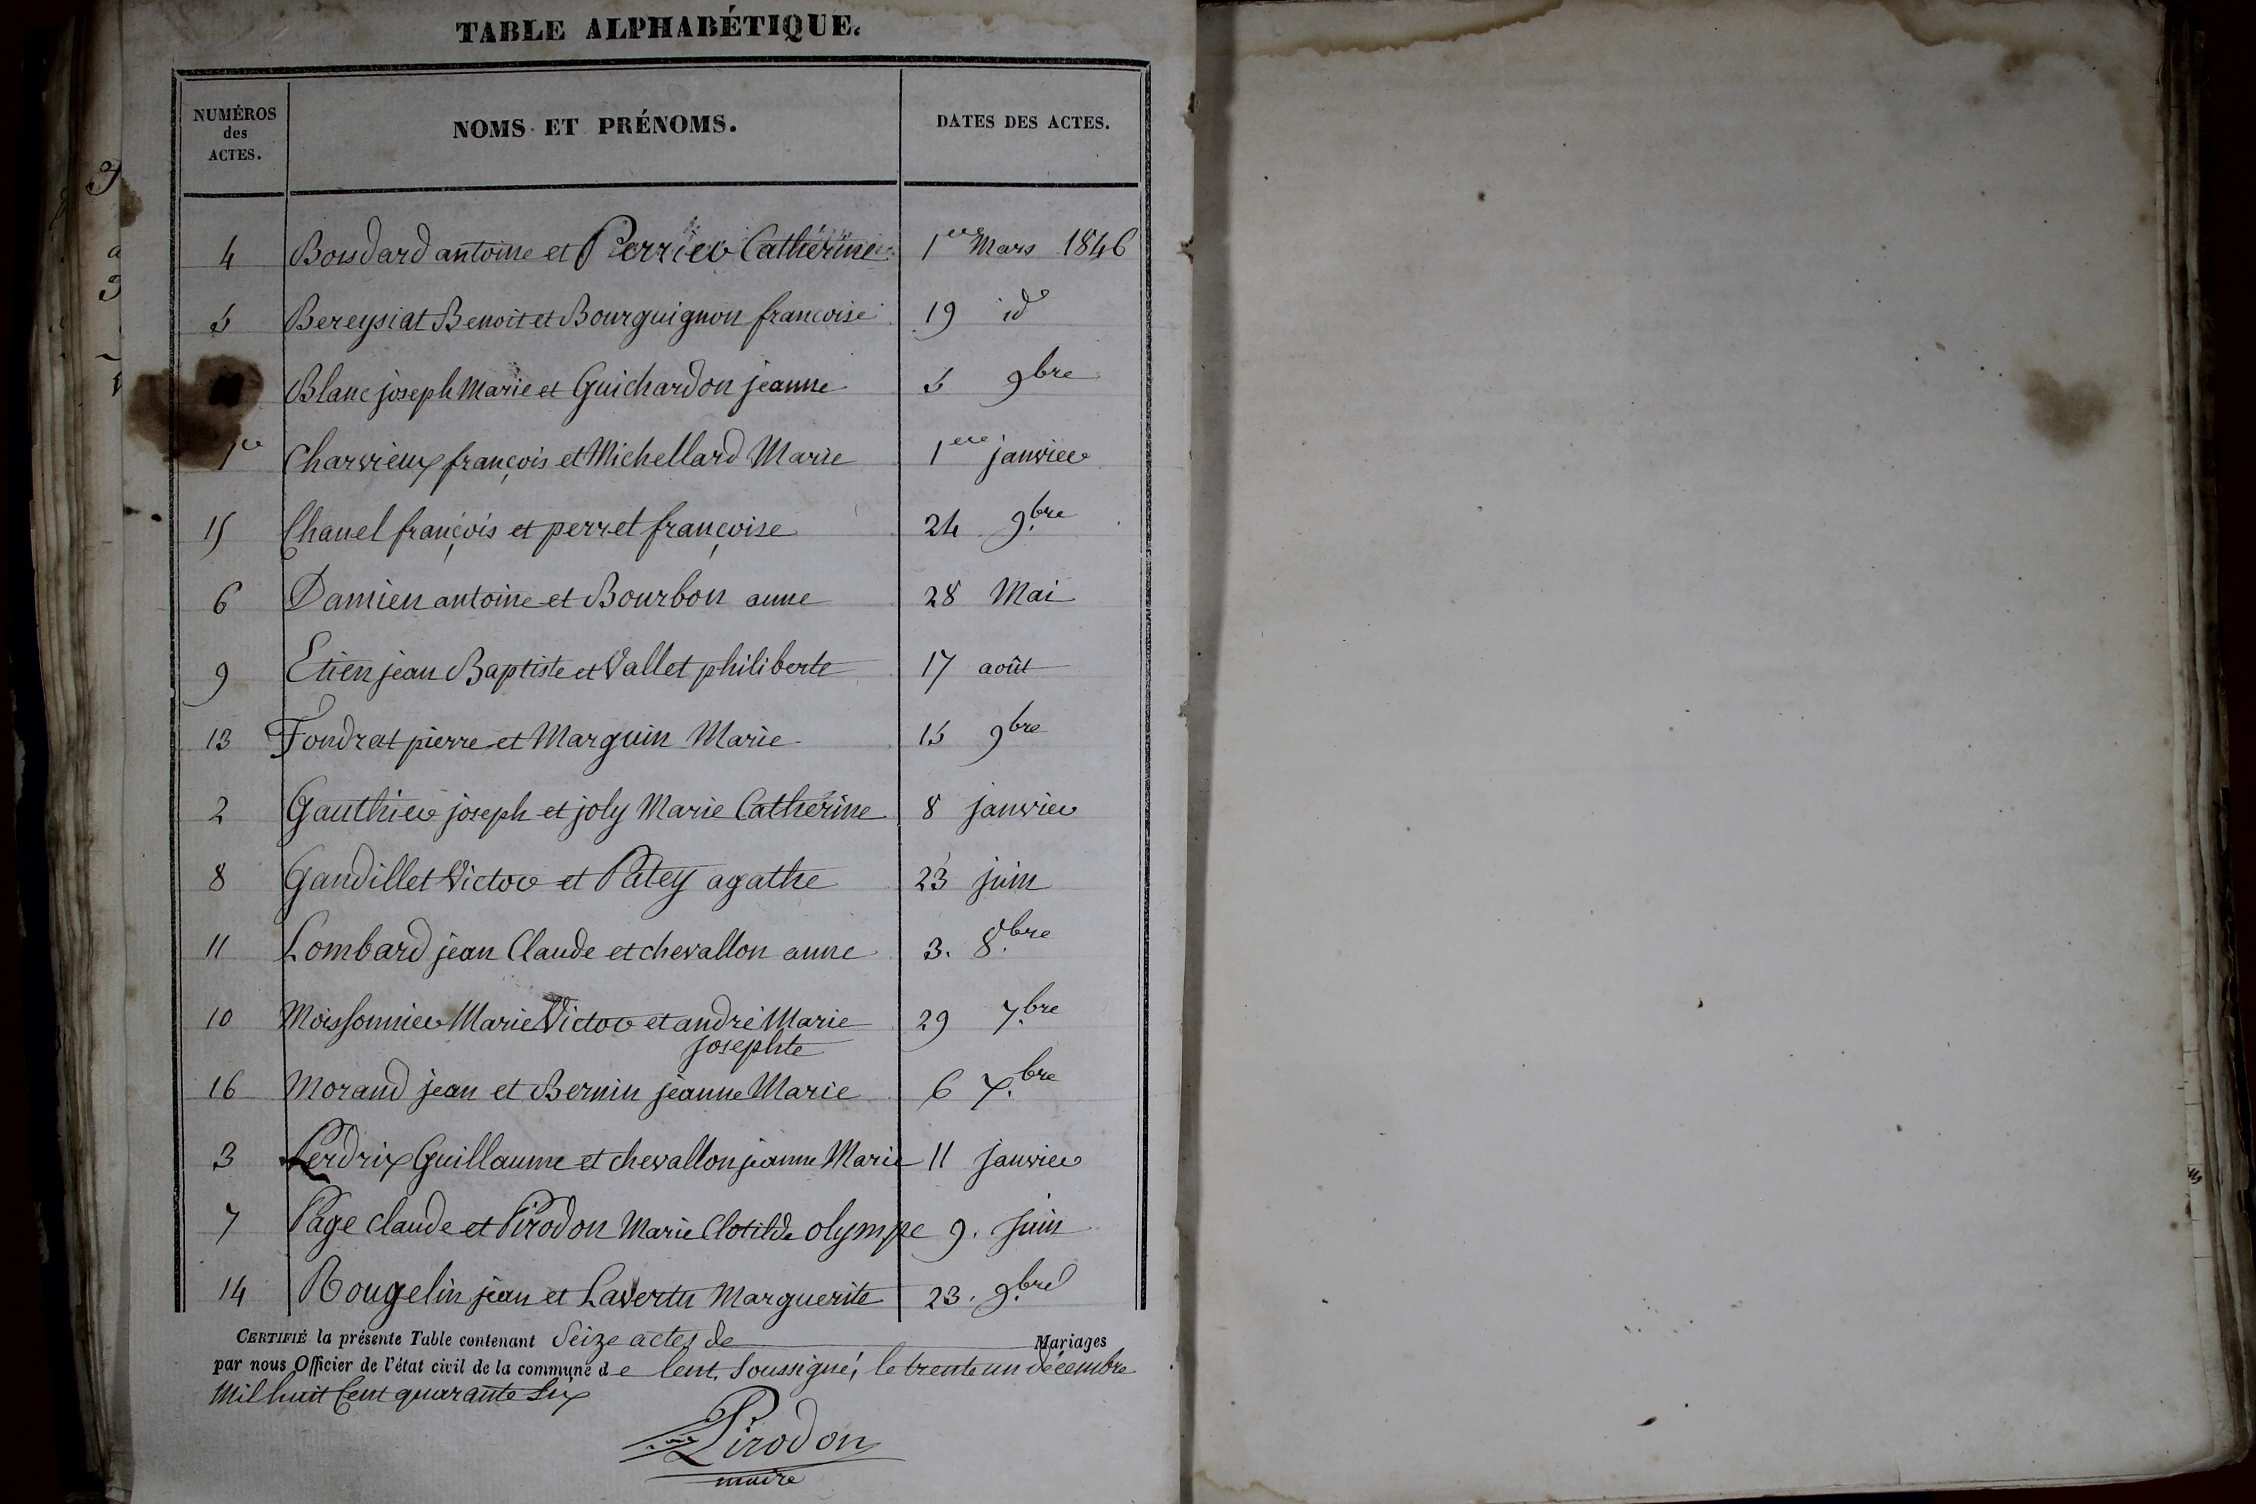 TABLE ALPHABÉTIQUE.
NUMÉROS des ACTES. NOMS ET PRÉNOMS. DATES DES ACTES.
4 Boisdard antoine et Perrier Cathérine 1er Mars 1846
5 Bereysiat Benoit et Bourguignon francoise 19 id
Blanc joseph Marie et Guichardon jeanne 5 9bre
1er Charvieux françois et Michellard Marie 1er janvier
15 Chanel françois et perret françoise 24 9bre
6 Damien antoine et Bourbon anne 28 Mai
9 Etien jean Baptiste et Vallet philiberte 17 août
13 Fondrat pierre et Marguin Marie 15 9bre
2 Gauthier joseph et joly Marie Cathérine 8 janvier
8 Gandillet Victor et Patey agathe 23 juin
11 Lombard jean Claude et chevallon anne 3. 8bre
10 Moissonnier Marie Victor et andré Marie 29 7bre
josephte
16 Morand jean et Bernin jeanne Marie 6 Xbre
3 Perdrix Guillaume et chevallon jeanne Marie 11 janvier
7 Page claude et Pirodon Marie Clotilde olympe 9. juin
14 Rougelin jean et Lavertu Marguerite 23. 9bre
CERTIFIÉ la présente Table contenant Seize actes de Mariages
par nous Officier de l'état civil de la commune de lent, Soussigné, le trente un décembre
Mil huit Cent quarante Six
Pirodon
maire